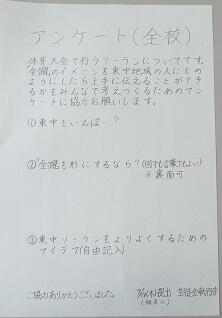 アンケート(全校)
体育大会で行うソーランについてです。
「全躍」のイメージを東中地域の人にどの
ようにしたら上手に伝えることができ
るかをみんなで考えつくるためのアン
ケートに協力お願いします。
①東中といえば…?
②「全躍を形にするなら?(図でも言葉でもよい)
※裏面可
③東中ソーランをよりよくするための
アイデア(自由記入)
ご協力ありがとうございました。
(木)提出 生徒会執行部